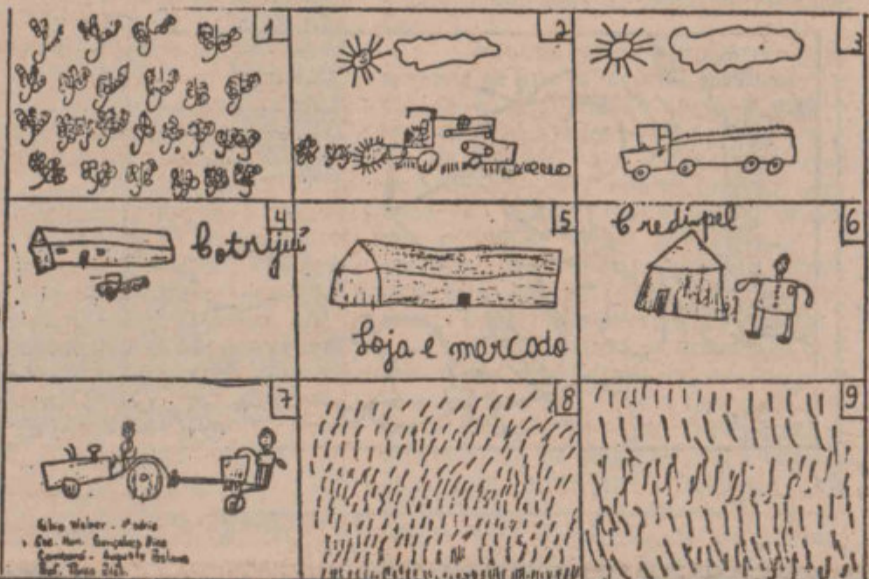 1
2
3
4
Cotrijuí
5
Loja e mercado
6
Credipel
7
Fábio Weber - série
Esc. Mun. Gonçalves Dias
Augusto Pestana
Prof.
8
9